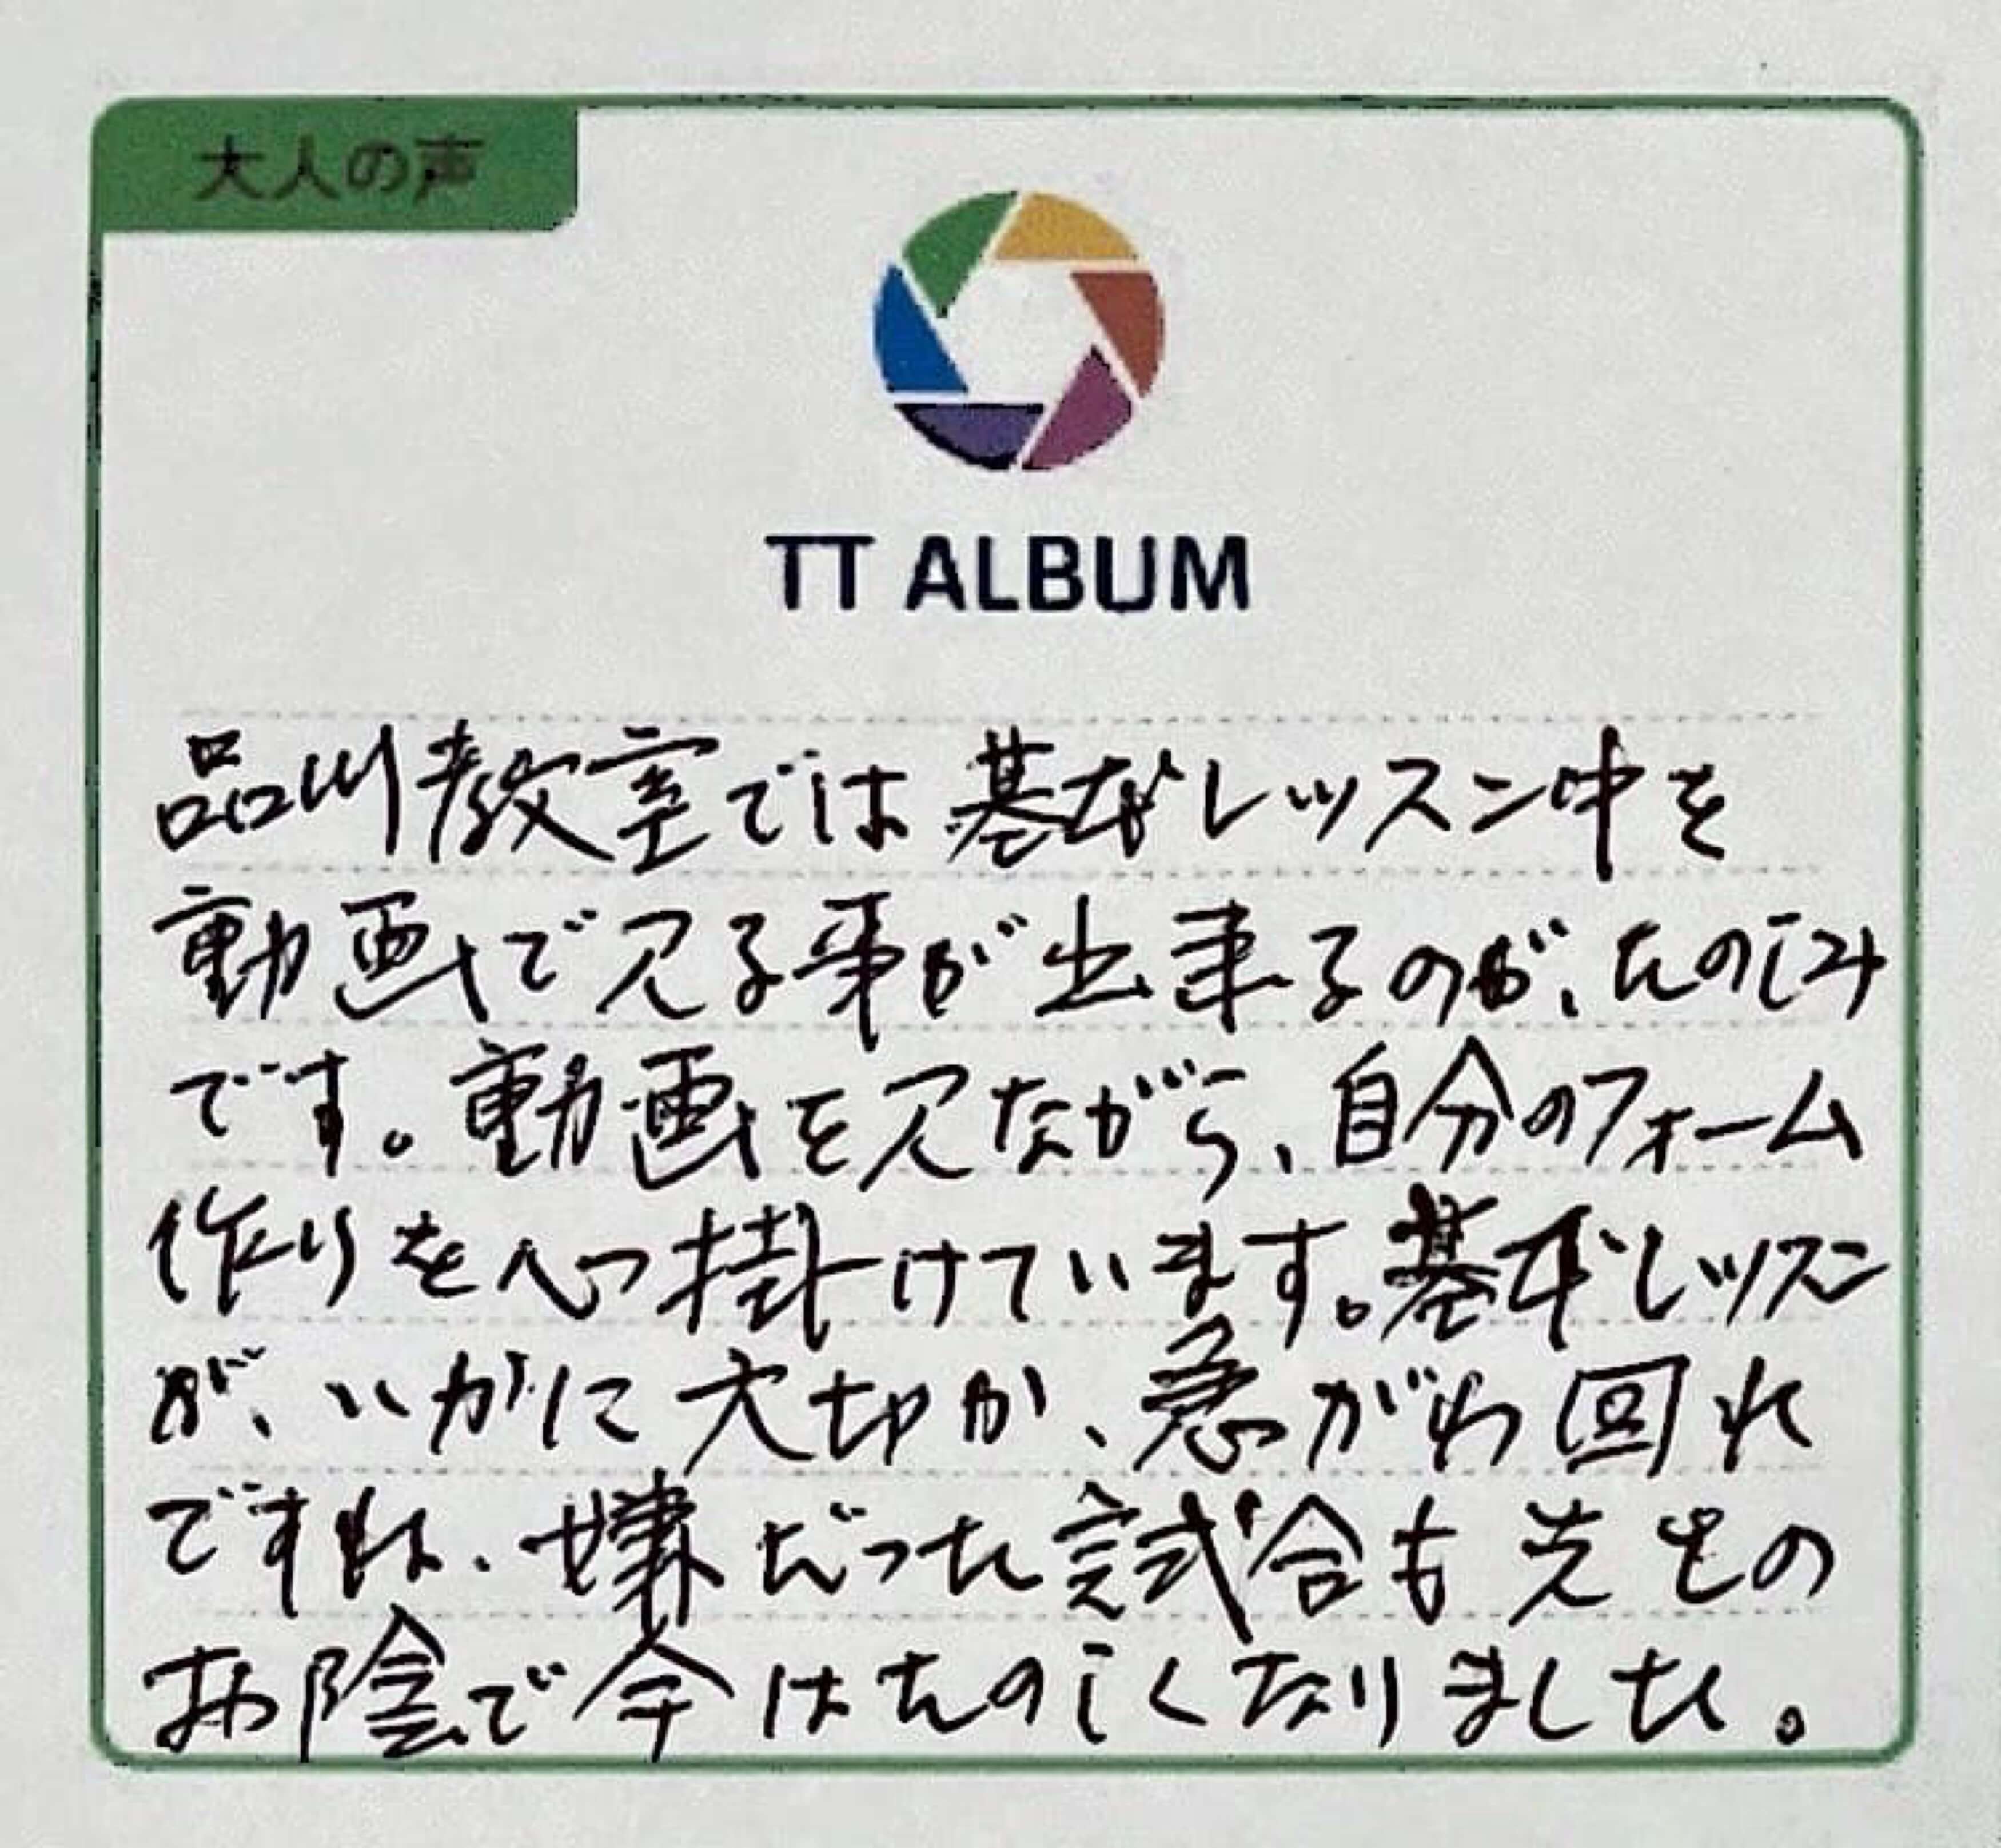 大人の声
TT ALBUM
品川教室では基本レッスン中を
動画で見る事が出来るのが、たのしみ
です。動画を見ながら、自分のフォーム
作りを心掛けています。基本レッスン
が、いかに大切か、急がわ回れ
ですね、嫌だった試合も先生の
お陰で今はたのしくなりました。